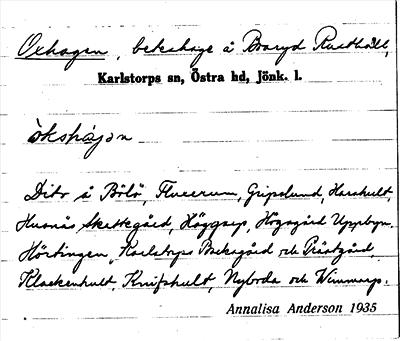 Oxhagen, beteshage å Boaryd Rusthåll,
Karlstorps sn, Östra hd, Jönk. l.
ò̀kshá̀jən
Dito å Bölö, Fluerum, Gripslund, Haeshult,
Hunnäs Skattegård, Häggarp, Högagård Uppbyn.
Hörtingen, Karlstorps Backagård och Prästgård,
Klackenhult, Knifshult, Nyboda och Wimmarp.
Annalisa Anderson 1935